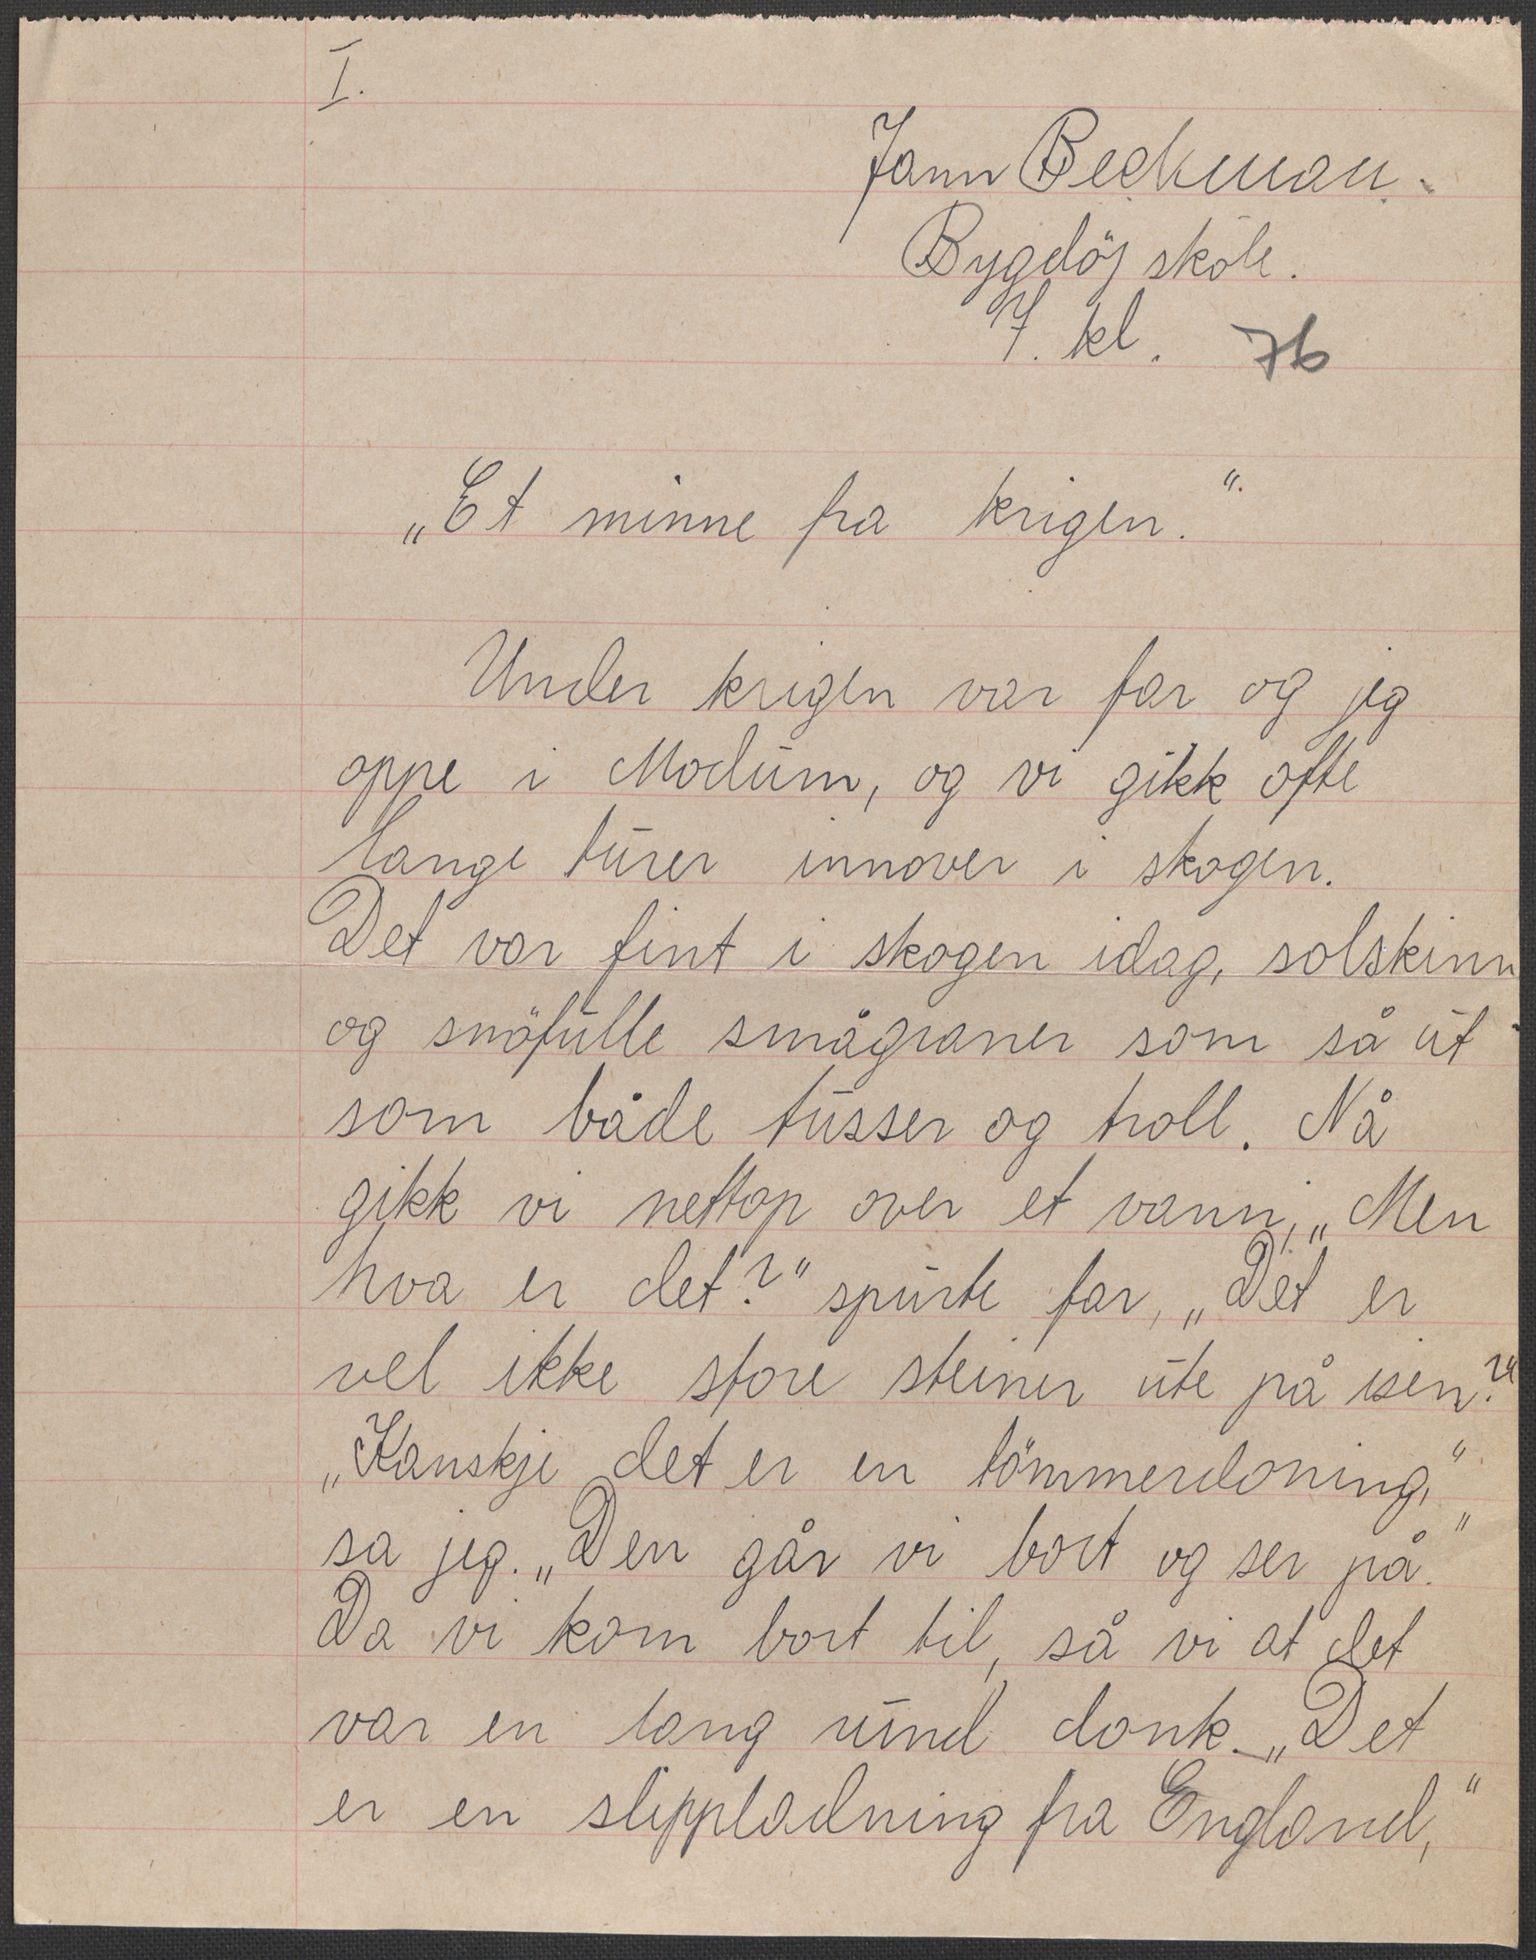 I.
Jann Beckman.
Bygdöj skole.
7. kl. 76
„Et minne fra krigen.“
Under krigen var far og jeg
oppe i Modum, og vi gikk ofte
lange turer innover i skogen.
Det var fint i skogen idag, solskinn
og snöfulle smågraner som så ut
som både tusser og troll. Nå
gikk vi nettop over et vann, „Men
hva er det?“ spurte far, „Det er
vel ikke store steiner ute på isen?“
„Kanskje det er en tömmerdoning,“
sa jeg. „Den går vi bort og ser på.“
Da vi kom bort til, så vi at det
var en lang rund donk. „Det
er en slippladning fra England,“